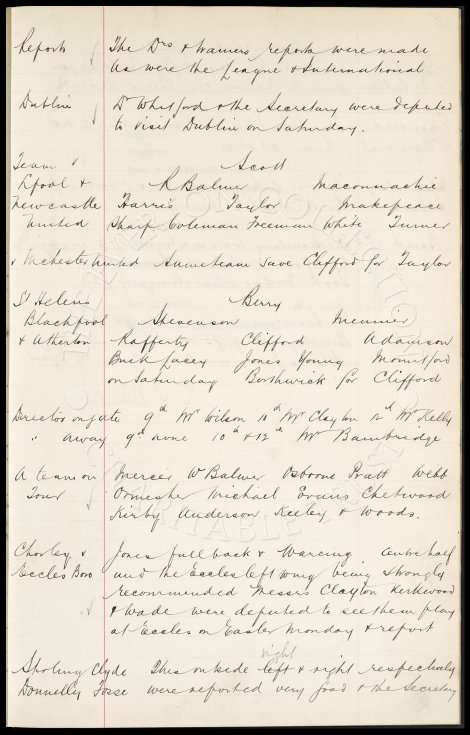 Reports The Drs & trainers reports were made
as were the League & International
Dublin Dr Whitford & the Secretary were deputed
to visit Dublin on Saturday.
Team v Scott
L'pool & R Balmer Maconnachie
Newcastle Harris Taylor Makepeace
United Sharp Coleman Freeman White Turner
& Mchester United Same team save Clifford for Taylor
St Helens Berry
Blackpool Stevenson Meunier
& Atherton Rafferty Clifford Adamson
Buck Lacey Jones Young Mountford
on Saturday Borthwick for Clifford
Directors on gate 9th Mr Wilson 10th Mr Clayton 12th Mr Kelly
" away 9th none 10th & 12th Mr Bainbridge
A team on Mercer W Balmer Osborne Pratt Webb
Tour Ormesher Michael Evans Chetwood
Kirby Anderson Keeley & Woods.
Chorley v Jones full back & Warcing centre half
Eccles Boro and the Eccles left wing being strongly
recommended Messrs Clayton Kirkwood
& Wade were deputed to see them play
at Eccles on Easter Monday & report
right
Clyde The outside left & right respectively
Donnelly were reported very good & the Secretary